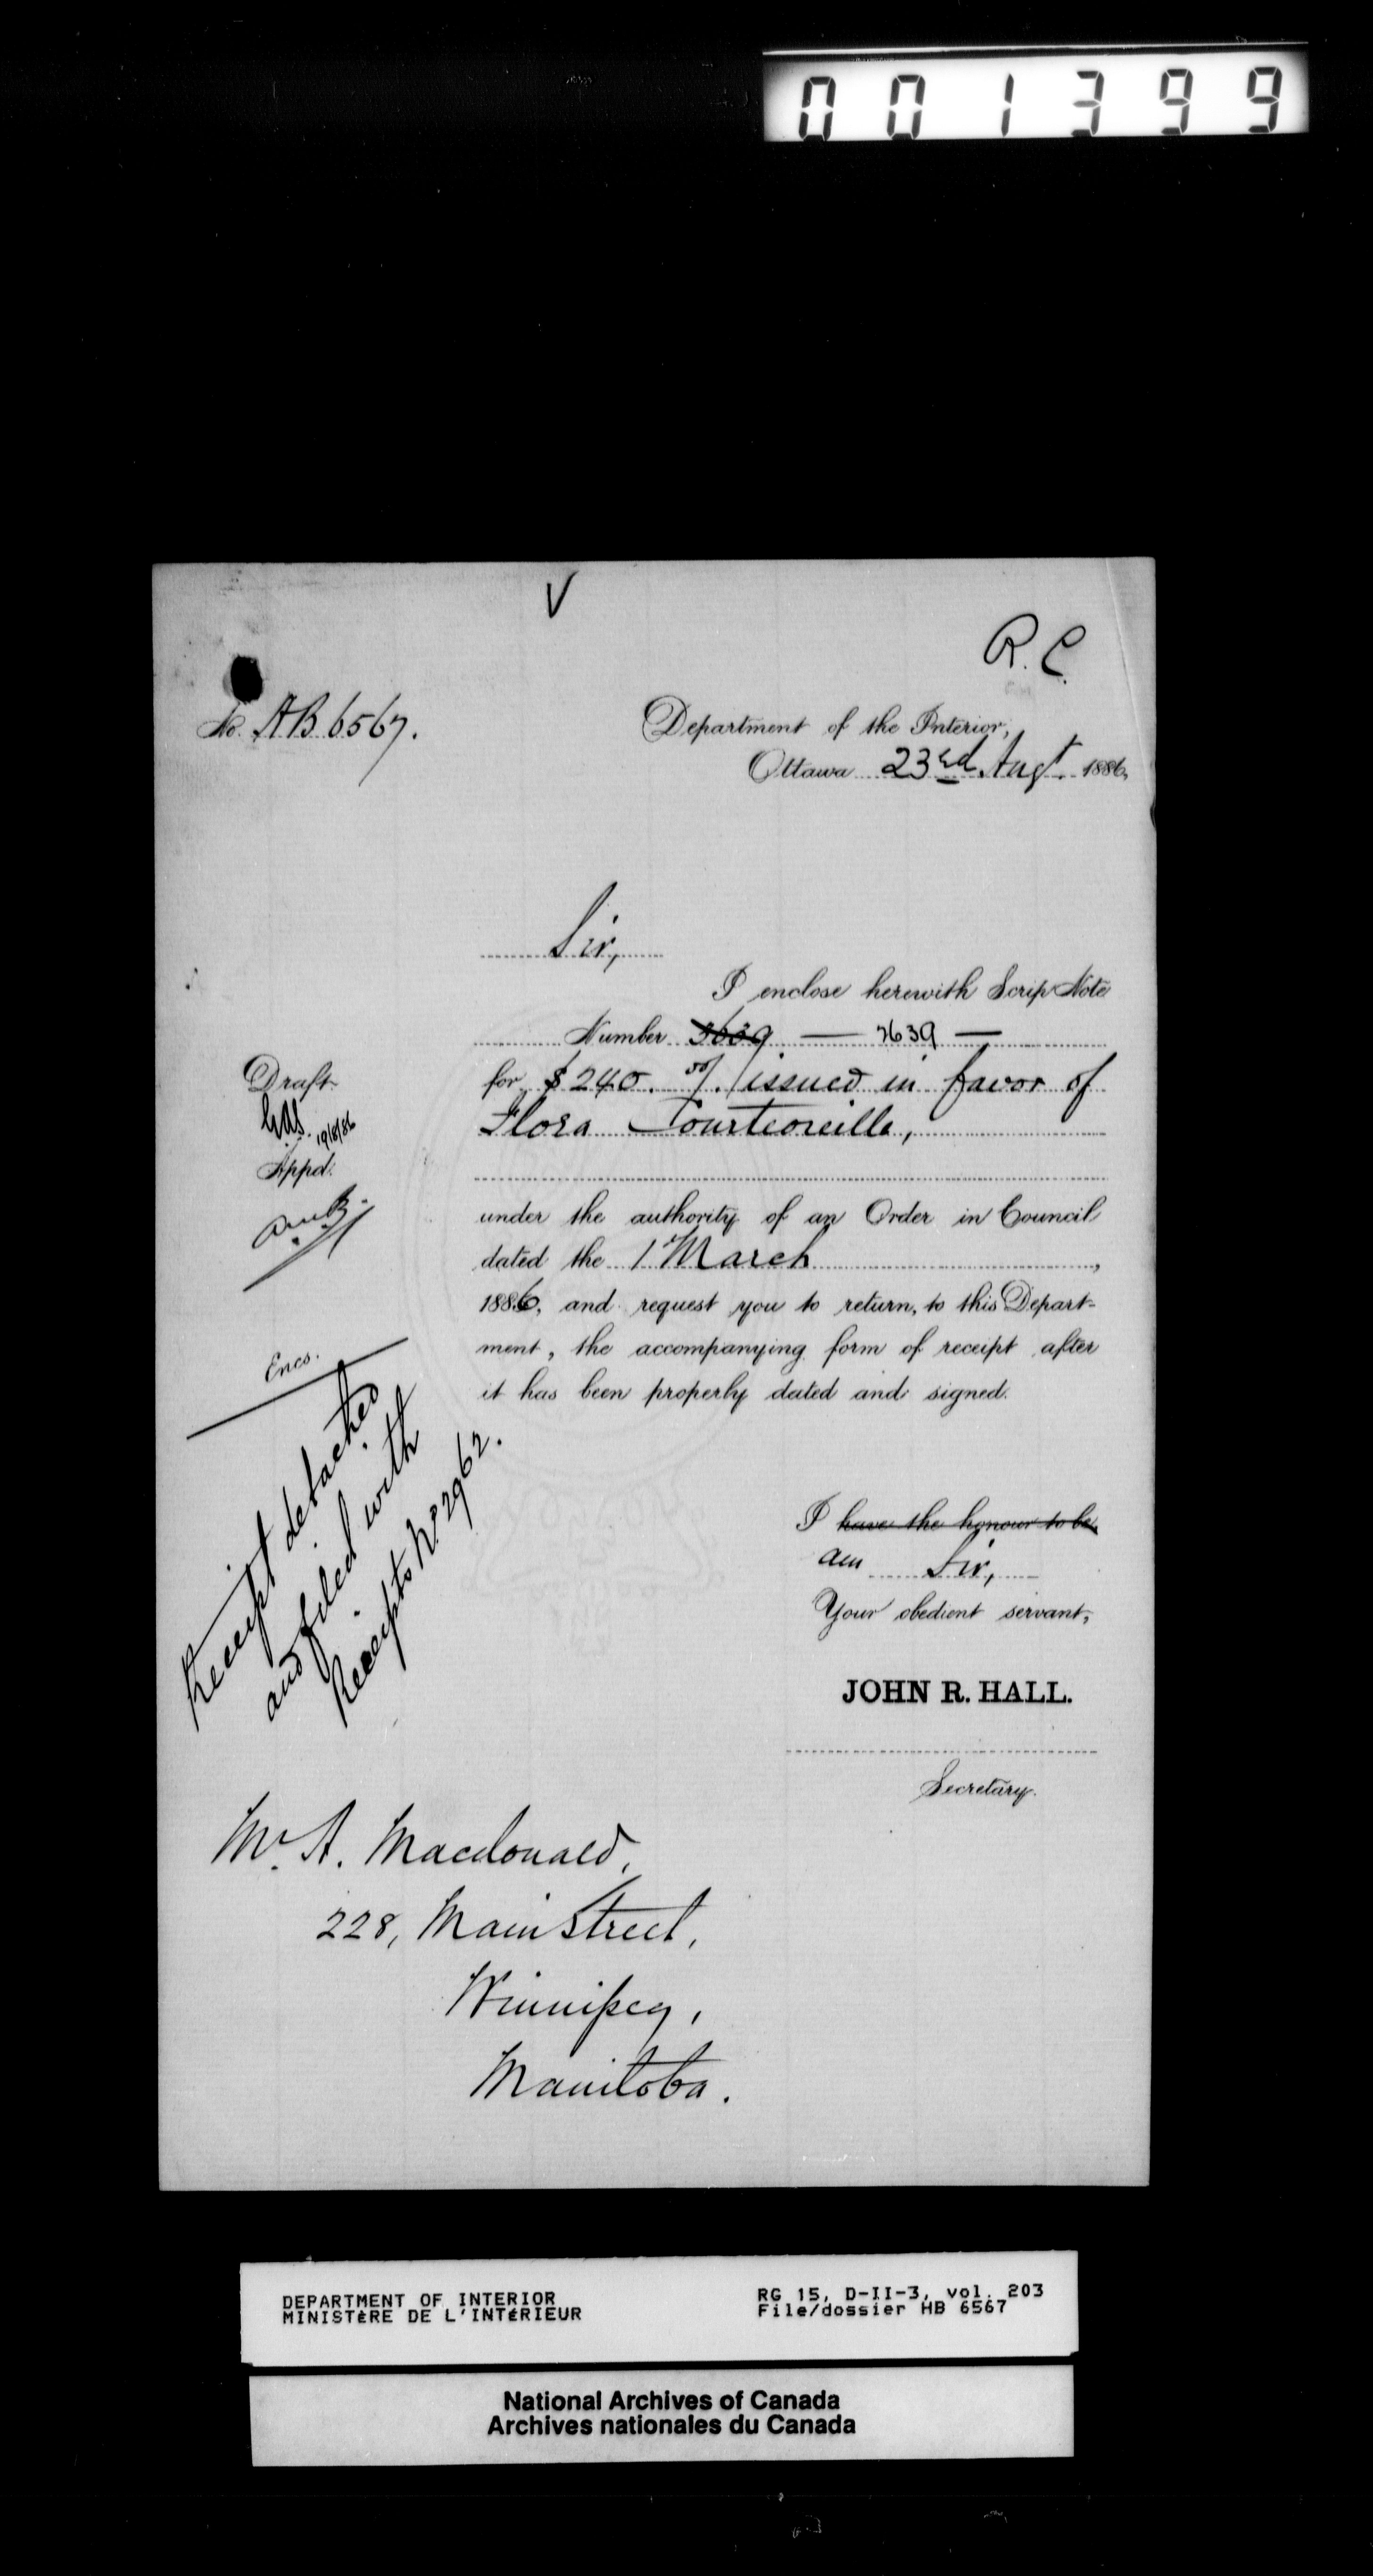 001399
V
R. C.
No. HB 6567.
Department of the Interior,
Ottawa 23rd Augt. 1886,
Sir,
I enclose herewith Scrip Note
Number 3639 — 7639 —
for $240.00/. issued in favor of
Flora Courtoreille,
Draft.
19/8/86
Appd.
under the authority of an Order in Council
dated the 1 March ,
1886, and request you to return, to this Depart-
ment, the accompanying form of receipt after
it has been properly dated and signed.
Encs.
Receipt detached
and filed with
Receipts No. 2962.
I have the honour to be,
am Sir,
Your obedient servant,
JOHN R. HALL.
Secretary.
Mr. A. Macdonald,
228, Main Street,
Winnipeg,
Manitoba.
DEPARTMENT OF INTERIOR
MINISTÈRE DE L'INTÉRIEUR
RG 15, D-II-3, vol. 203
File/dossier HB 6567
National Archives of Canada
Archives nationales du Canada